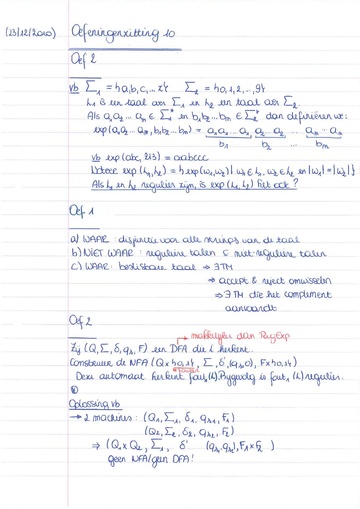 (23/12/2010) Oefeningenzitting 10
Oef 2
vb Σ₁ = {a,b,c,...z} Σ₂ = {0,1,2,..,9}
L₁ is een taal over Σ₁ en L₂ een taal over Σ₂.
Als a₁a₂... aₙ ∈ Σ₁* en b₁b₂...bₙ ∈ Σ₂* dan definiëren we:
exp(a₁a₂...aₙ, b₁b₂...bₙ) = a₁a₁...a₁ a₂...a₂ ... aₙ...aₙ
b₁ b₂ ... bₙ
vb exp(abc, 213) = aabccc
Notatie exp(L₁,L₂) = {exp(w₁,w₂) | w₁ ∈ L₁, w₂ ∈ L₂ en |w₁| = |w₂|}
Als L₁ en L₂ regulier zijn, is exp(L₁,L₂) het ook?
Oef 1
a) WAAR: disjunctie voor alle strings van de taal
b) NIET WAAR: reguliere talen ⊂ niet-reguliere talen
c) WAAR: beslisbare taal ⇒ ∃TM
⇒ accept & reject omwisselen
⇒ ∃TM die het complement
aanvaardt
Oef 2
→ makkelijker dan RegExp
Zij (Q,Σ,δ,qₛ,F) een DFA die L herkent.
Construeer de NFA (Q×{0,1}, Σ, δ',(qₛ,0), F×{0,1})
Deze automaat herkent fout₁(L). Bijgevolg is fout₁(L) regulier.
Oplossing vb
→ 2 machines: (Q₁,Σ₁,δ₁,qₛ₁,F₁)
(Q₂,Σ₂,δ₂,qₛ₂,F₂)
⇒ (Q₁×Q₂, Σ₁, δ' (qₛ₁,qₛ₂), F₁×F₂)
geen NFA/geen DFA!